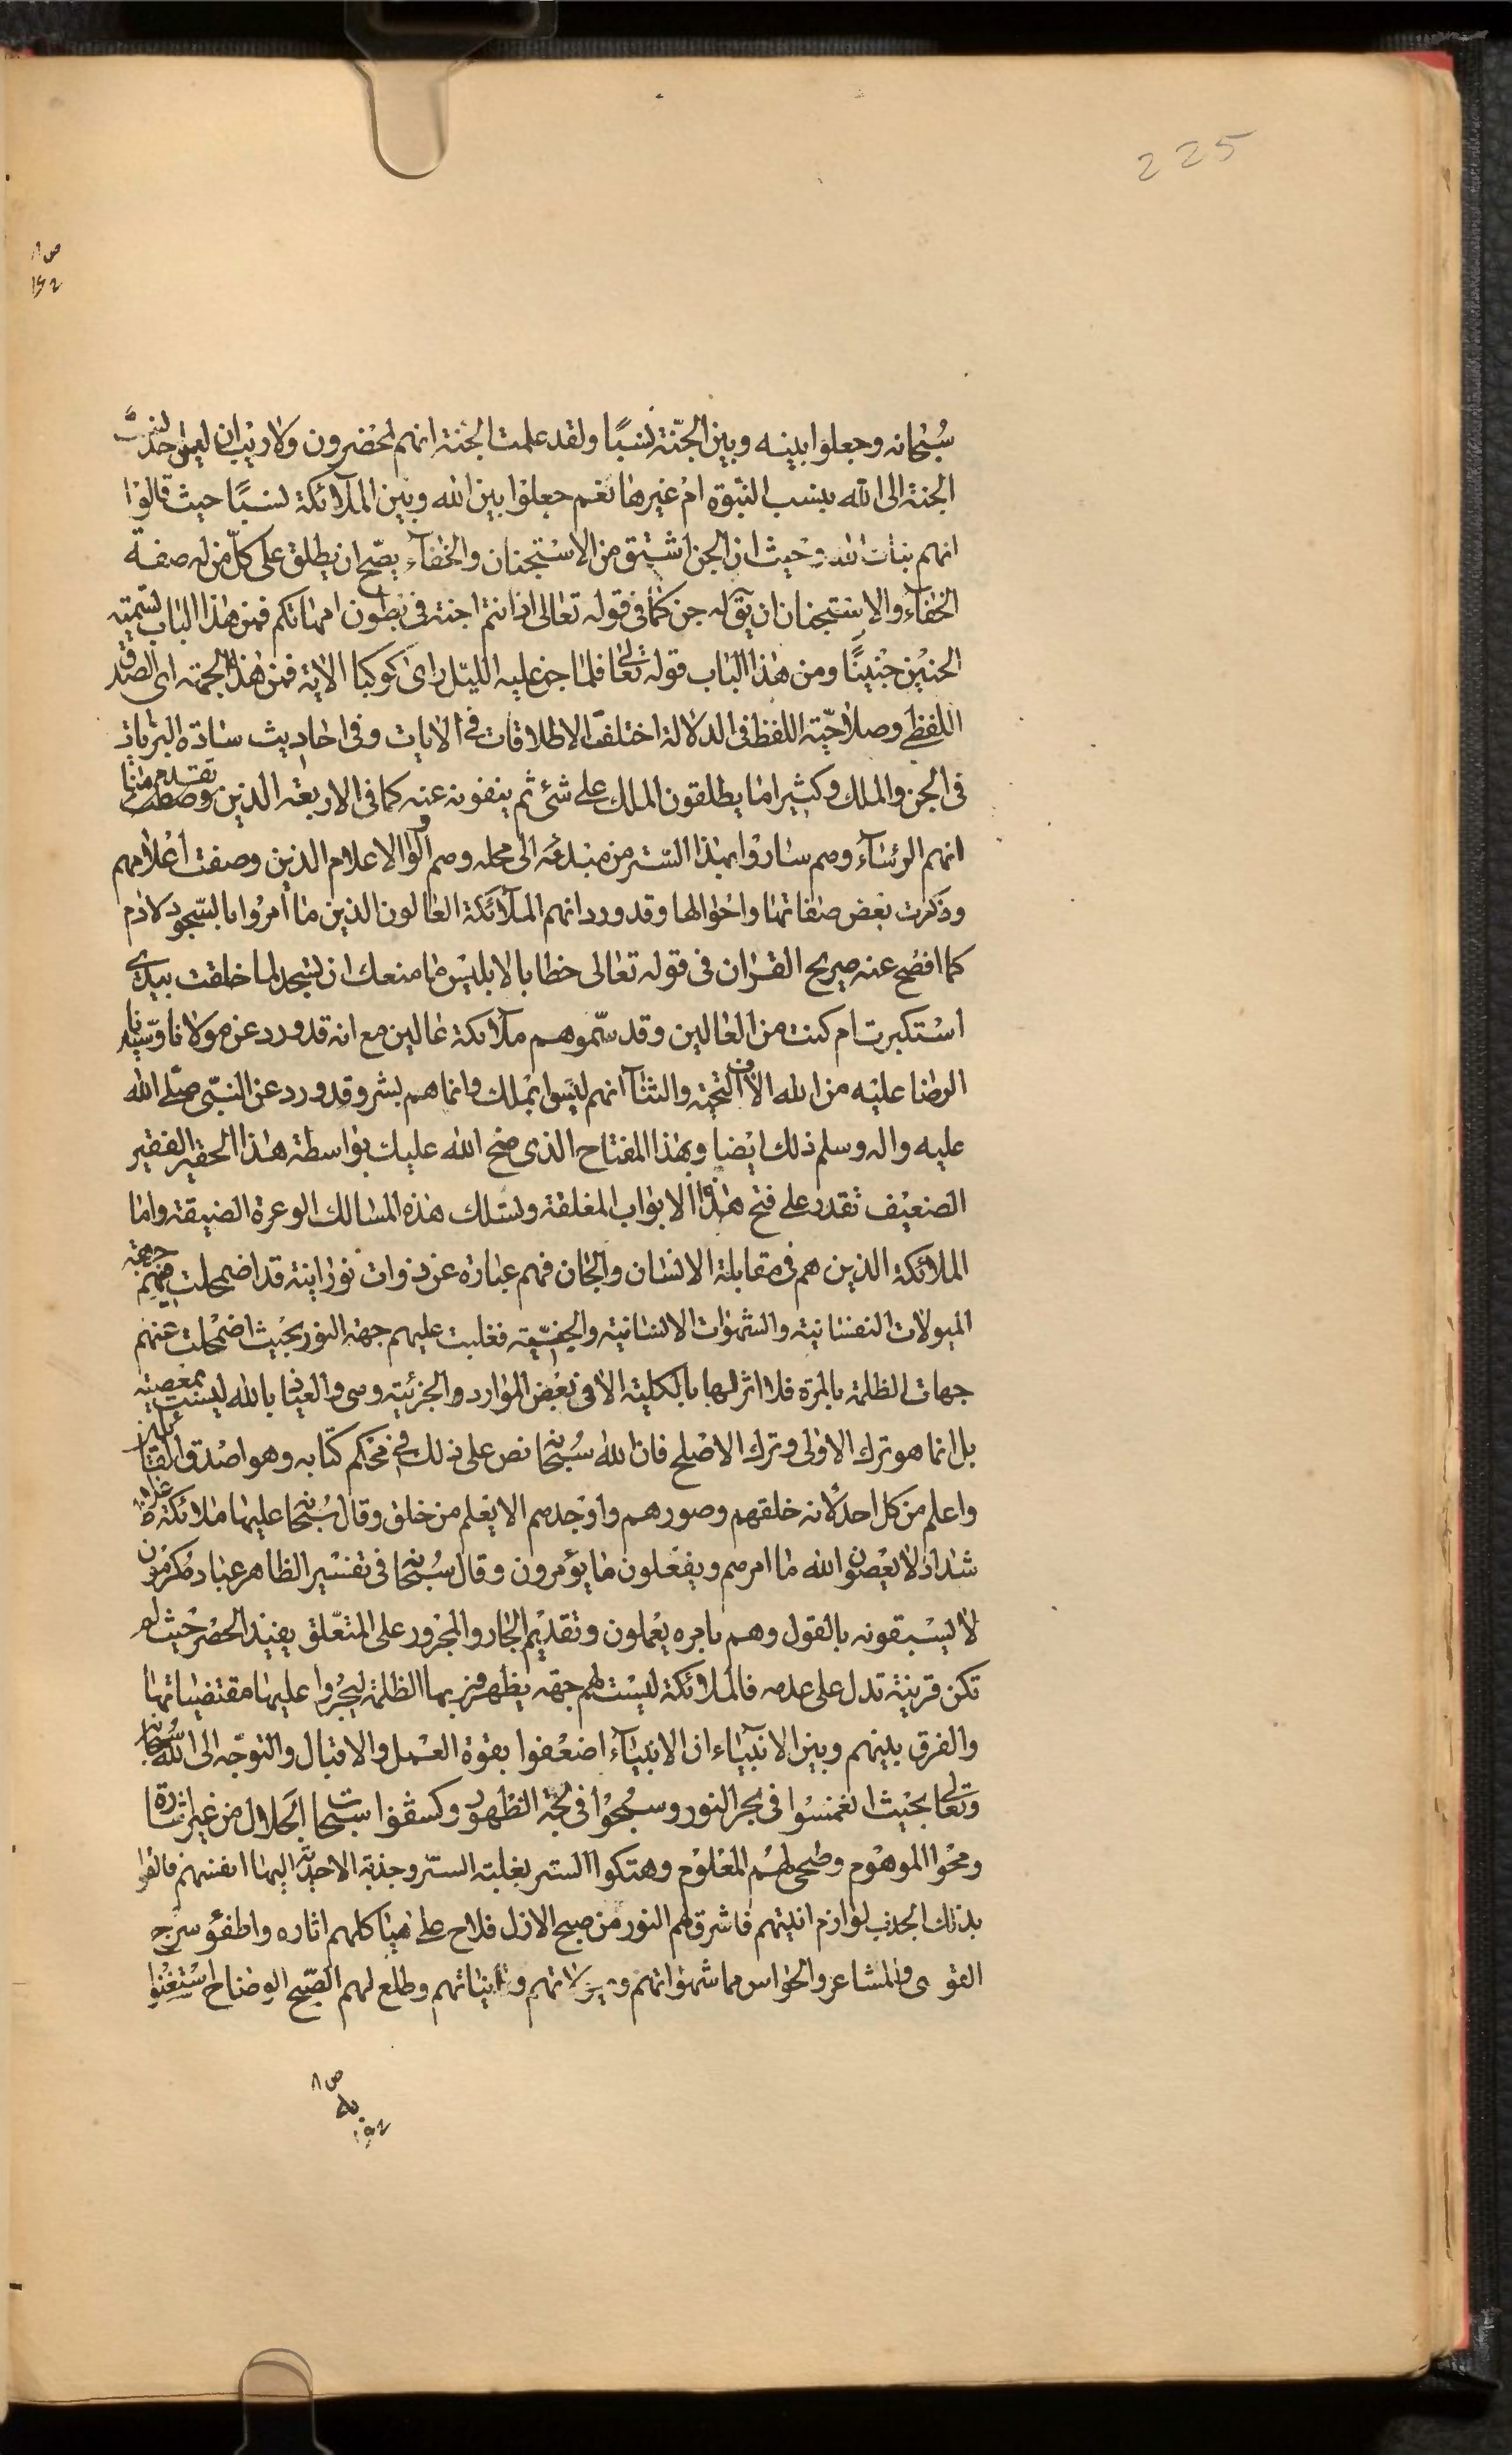 225
سُبْحانه وجعلوا بينه وبين الجنّة نسبًا ولقد علمت الجنة انهم لمحضرون ولا ريب ان ليس احد ينسب
الجنة الى الله بنسب النبّوة ام غيرها نعم جعلوا بين الله وبين الملآئكة نسبًا حيث قالوْا
انهم بنات الله وحيث ان الجن اشتق من الاسْتجنان والخفآء يصّح ان يطلق على كلّ من له صفة
الخفآء والاستجنان ان يقَ له جن كما فى قوله تعالى اذ انتم اجنة فى بطون امهاتكم فمن هذا الباب تسمية
الجنيْن جنينًا ومن هذا الباب قوله تعالى فلما جن عليه الليل راى كوكبا الاية فمن هذه الجهة اى الصدق
اللفظى وصلاحيّة اللفظ فى الدلالة اختلفت الاطلاقات فى الايات وفى احاديث سادة البريات
فى الجن والملك وكثيرا ما يطلقون الملك على شئ ثم ينفونه عنه كما فى الاربعة الذين تقدم منا وصفهم
انهم الرئساء وهم ساروا بهذا السّر من مبدئه الى محله وهم اولوا الاعلام الذين وصفت اعْلامهم
وذكرت بعض صفاتها واحْوالها وقد ورد انهم الملآئكة العالون الذين ما امرُوا بالسّجود لادم
كما افصْح عنه صريح القران فى قوله تعالى خطابا لابليْس ما منعك ان تسْجد لما خلقت بيدى
اسْتكبرت ام كنت من العالين وقد سّموهم ملآئكة عالين مع انه قد ورد عن مولانا وسّيدنا
الرضا عليْه من الله الاف التحية والثنآ انهم ليْسوا بملك وانما هم بشر وقد ورد عن النبّى صّلى الله
عليه واله وسلم ذلك ايْضا وبهذا المفتاح الذى فتح الله عليك بواسطة هذا الحقير الفقير
الضعيْف تقدر على فتح هذه الابواب المغلقة وتسْلك هذه المسالك الوعرة الضيقة واما
الملائكة الذين هم فى مقابلة الانسان والجان فهم عبارة عن ذوات نورانية قد اضمحلت فيهم جهة
الميولات النفسانية والشهوات الانسانية والجنّية فغلبت عليهم جهة النور بحيْث اضمْحلت عنهم
جهات الظلمة بالمرة فلا اثر لها بالكلية الا فى بعْض الموارد والجزئية وهى والعياذ بالله ليست بمعْصية
بل انما هو ترك الاوْلى وترك الاصْلح فان الله سُبْحانه نص على ذلك فى محْكم كتابه وهو اصْدق القائلين
واعلم من كل احد لانه خلقهم وصورهم واوْجدهم الا يعْلم من خلق وقال سُبْحانه عليها ملائكة غلاظ
شداد لا يعْصون الله ما امرهم ويفعْلون ما يؤمرون وقال سُبْحانه فى تفسْير الظاهر عباد مُكرمُون
لا يسْبقونه بالقول وهم بامره يعْملون وتقديْم الجار والمجرور على المتعّلق يفيْد الحصْر حيْث لم
تكن قرينة تدل على عدمه فالملائكة ليسْت لهم جهة يظهر فى بها الظلمة ليجْروا عليها مقتضياتها
والفرق بينهم وبين الانبيآء ان الانبيآء اضعْفوا بقوة العْمل والاقبال والتوجّه الى الله سُبحانه
وتعالى بحيْث انغمسُوا فى بحر النور وسبحُوا فى لجّة الظهور وكشفوا سبحات الجَلال من غير اشارة
ومحْوا الموهوْم وصْحى لهمْ المعْلوْم وهتكوا السْتر بغلبة السّر وجذبة الاحديّة اليها انفسهم فالقوا
بذلك الجذب لوازم انيتهم فاشرق لهم النور من صبح الازل فلاح على هياكلهم اثاره واطفئو سرج
القوى والمشاعر والحواس مما شهواتهم وميولاتهم وانياتهم وطلع لهم الصّبح الوضاح اسْتغْنوا